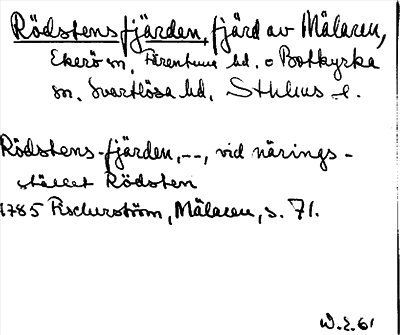 Rödstensfjärden, fjärd av Mälaren,
Ekerö sn, Färentuna hd. o Botkyrka
sn, Svartlösa hd, Sthlms l.
Rödstens-fjärden, --, vid närings-
stället Rödsten
1785 Fischerström, Mälaren, s. 71.
W.E. 61